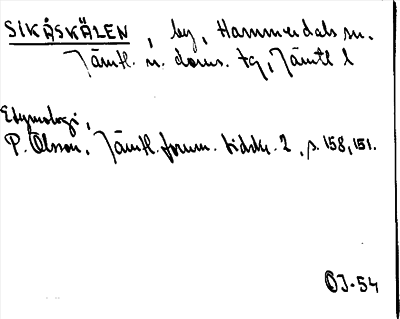 SIKÅSKÄLEN, by, Hammerdals sn.
Jämtl. n. doms. tg, Jämtl l
Etymologi,
P. Olsson, Jämtl. fornm. tidskr. 2, s. 158, 151.
OJ-54